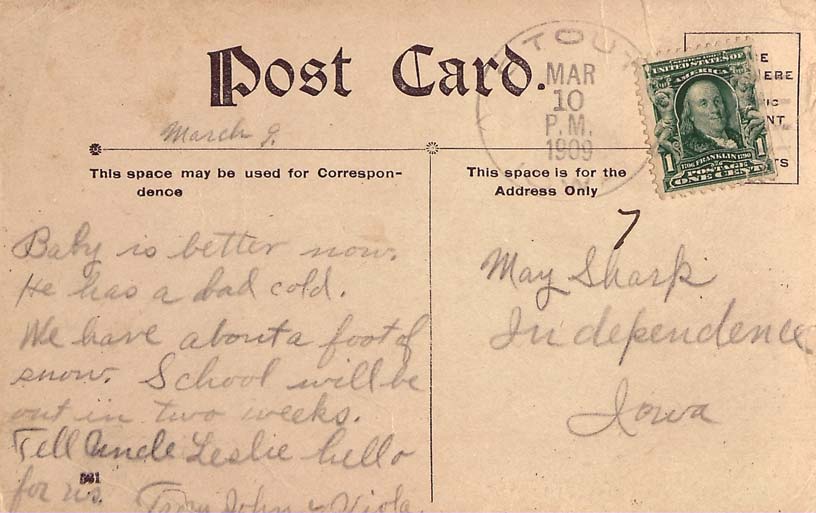 Post Card.
MAR
10
P.M.
1909
UNITED STATES OF
AMERICA
1706 FRANKLIN 1790
1 POSTAGE 1
ONE CENT
March 9.
This space may be used for Correspon-
dence
This space is for the
Address Only
7
Baby is better now.
He has a bad cold.
We have about a foot of
snow. School will be
out in two weeks.
Tell Uncle Leslie hello
for us. From John & Viola
May Sharp
Independence
Iowa